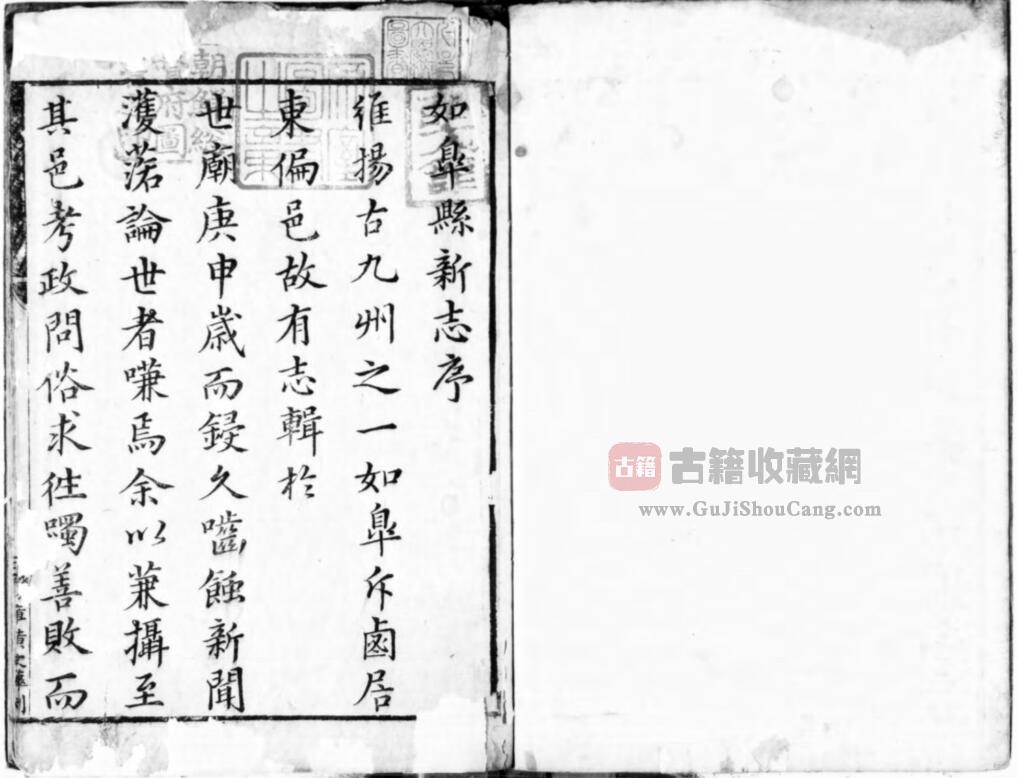 如臯縣新志序
維揚古九州之一如臯斥鹵居
東偏邑故有志輯於
世廟庚申嵗而鋟久嚙蝕新聞
濩落論世者嗛焉余以兼攝至
其邑考政問俗求徃噣善敗而
古籍
古籍收藏網
www.GuJiShouCang.com